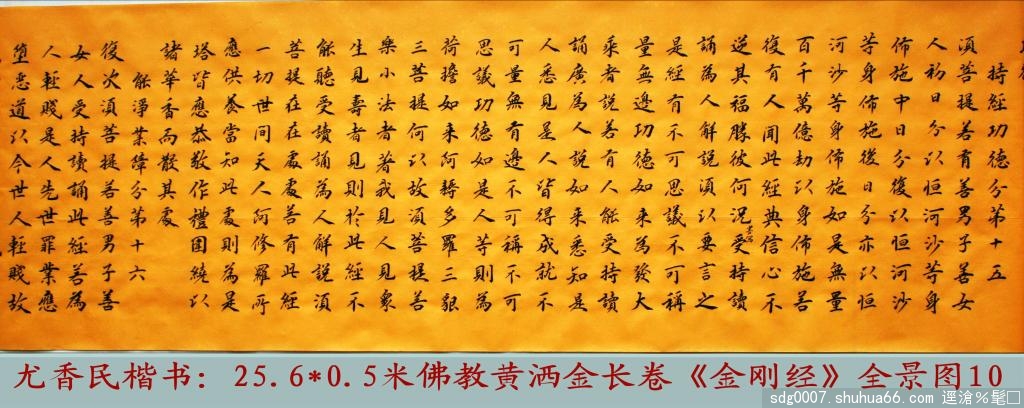 持經功德分第十五
須菩提若有善男子善女
人初日分以恒河沙等身
佈施中日分復以恒河沙
等身佈施後日分亦以恒
河沙等身佈施如是無量
百千萬億劫以身佈施若
復有人聞此經典信心不
逆其福勝彼何況書寫受持讀
誦為人解說須以要言之
是經有不可思議不可稱
量無邊功德如來為發大
乘者說若有人能受持讀
誦廣為人說如來悉知是
人悉見是人皆得成就不
可量無有邊不可稱不可
思議功德如是人等則為
荷擔如來阿耨多羅三藐
三菩提何以故須菩提若
樂小法者著我見人見眾
生見壽者見則於此經不
能聽受讀誦為人解說須
菩提在在處處若有此經
一切世間天人阿修羅所
應供養當知此處則為是
塔皆應恭敬作禮圍繞以
諸華香而散其處
能淨業障分第十六
復次須菩提若善男子善
女人受持讀誦此經若為
人輕賤是人先世罪業應
墮惡道以今世人輕賤故
尤香民楷书：25.6*0.5米佛教黄洒金长卷《金刚经》全景图10
sdg0007.shuhua66.com